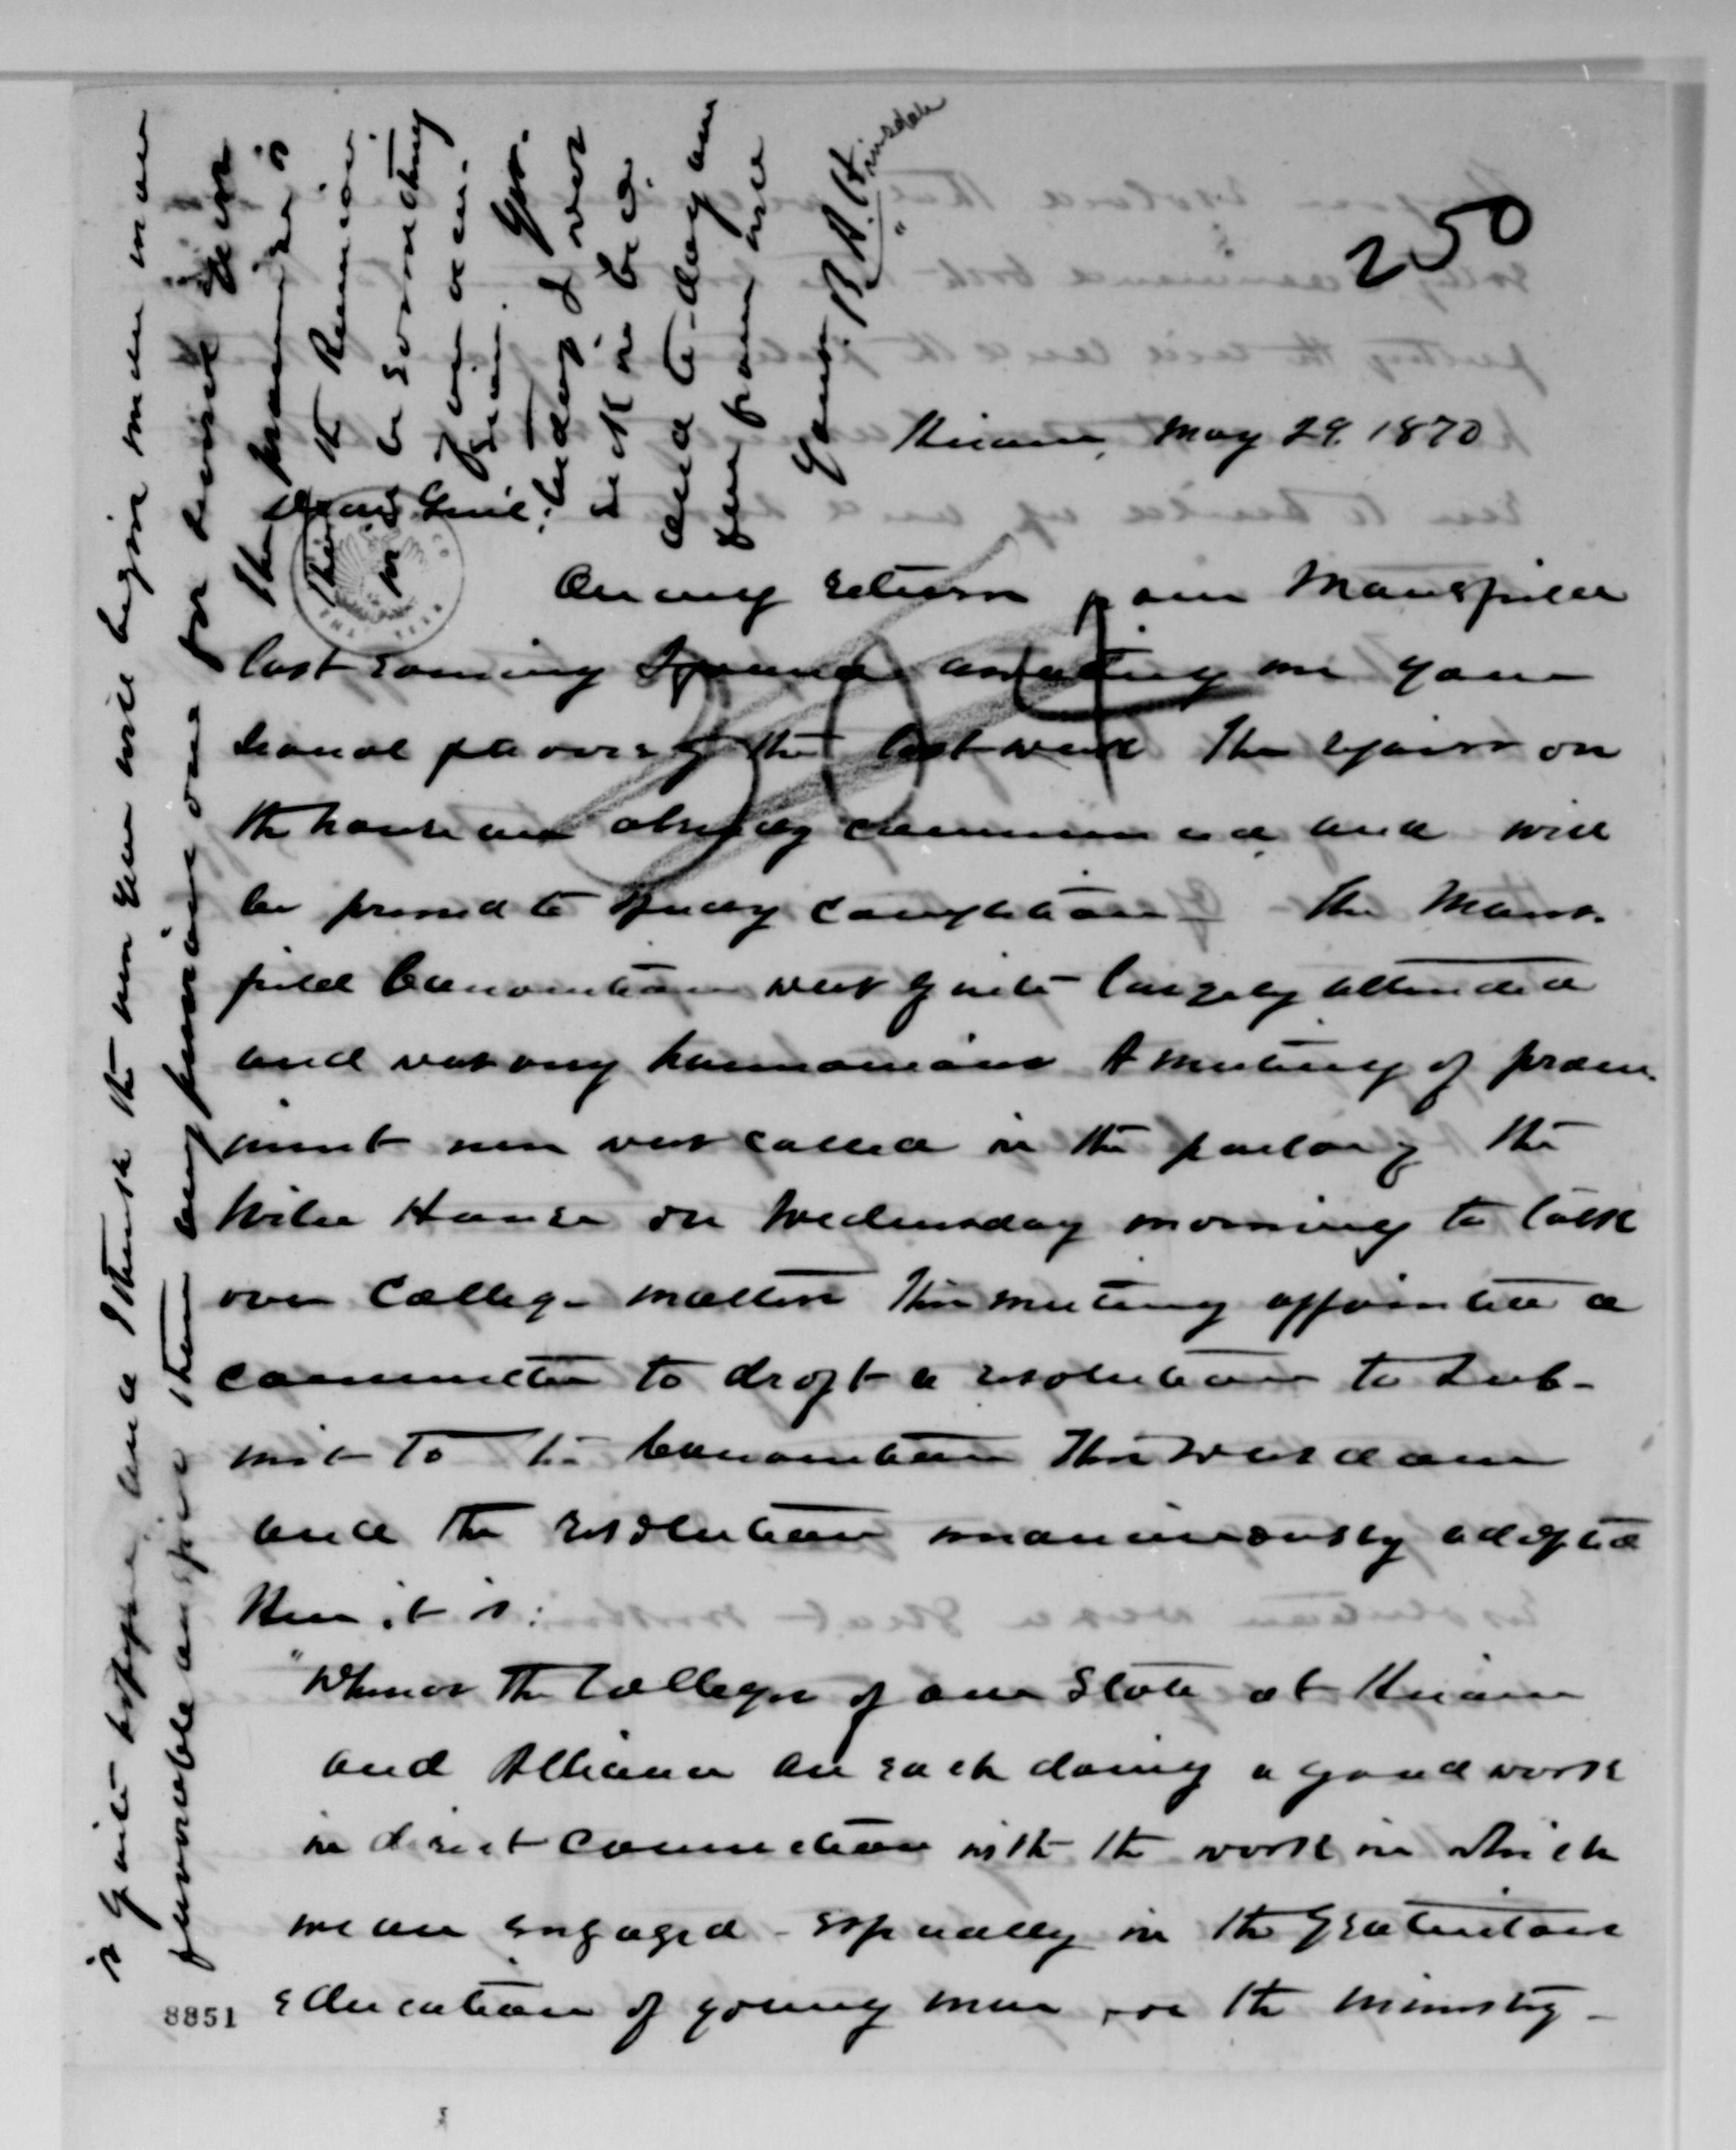 250
Hiram, May 29. 1870
Dear Genl:
On my return from Mansfield
last evening I found awaiting me your
several favors of the last week The repairs on
the house are already commenced and will
be pressed to speedy completion – The Mans-
field Convention was quite largely attended
and was very harmonious A meeting of prom-
inent men was called in the parlor of the
Wiler House on Wednesday morning to talk
over College matters This meeting appointed a
committee to draft a resolution to sub-
mit to the Convention This was done
and the resolution unanimously adopted
Here it is:
"Whereas The Colleges of our State at Hiram
and Alliance are each doing a good work
in direct connection with the work in which
we are engaged – especially in the gratuitous
education of young men for the ministry –
8851
is quite happy, and I think the new year will begin under more
favorable auspices than any previous one for some years
There promises
The Reunion
be something
of an occa-
sion.
I was
sick in bed
and to-day am
far from well
Yours B. A. Hinsdale
304